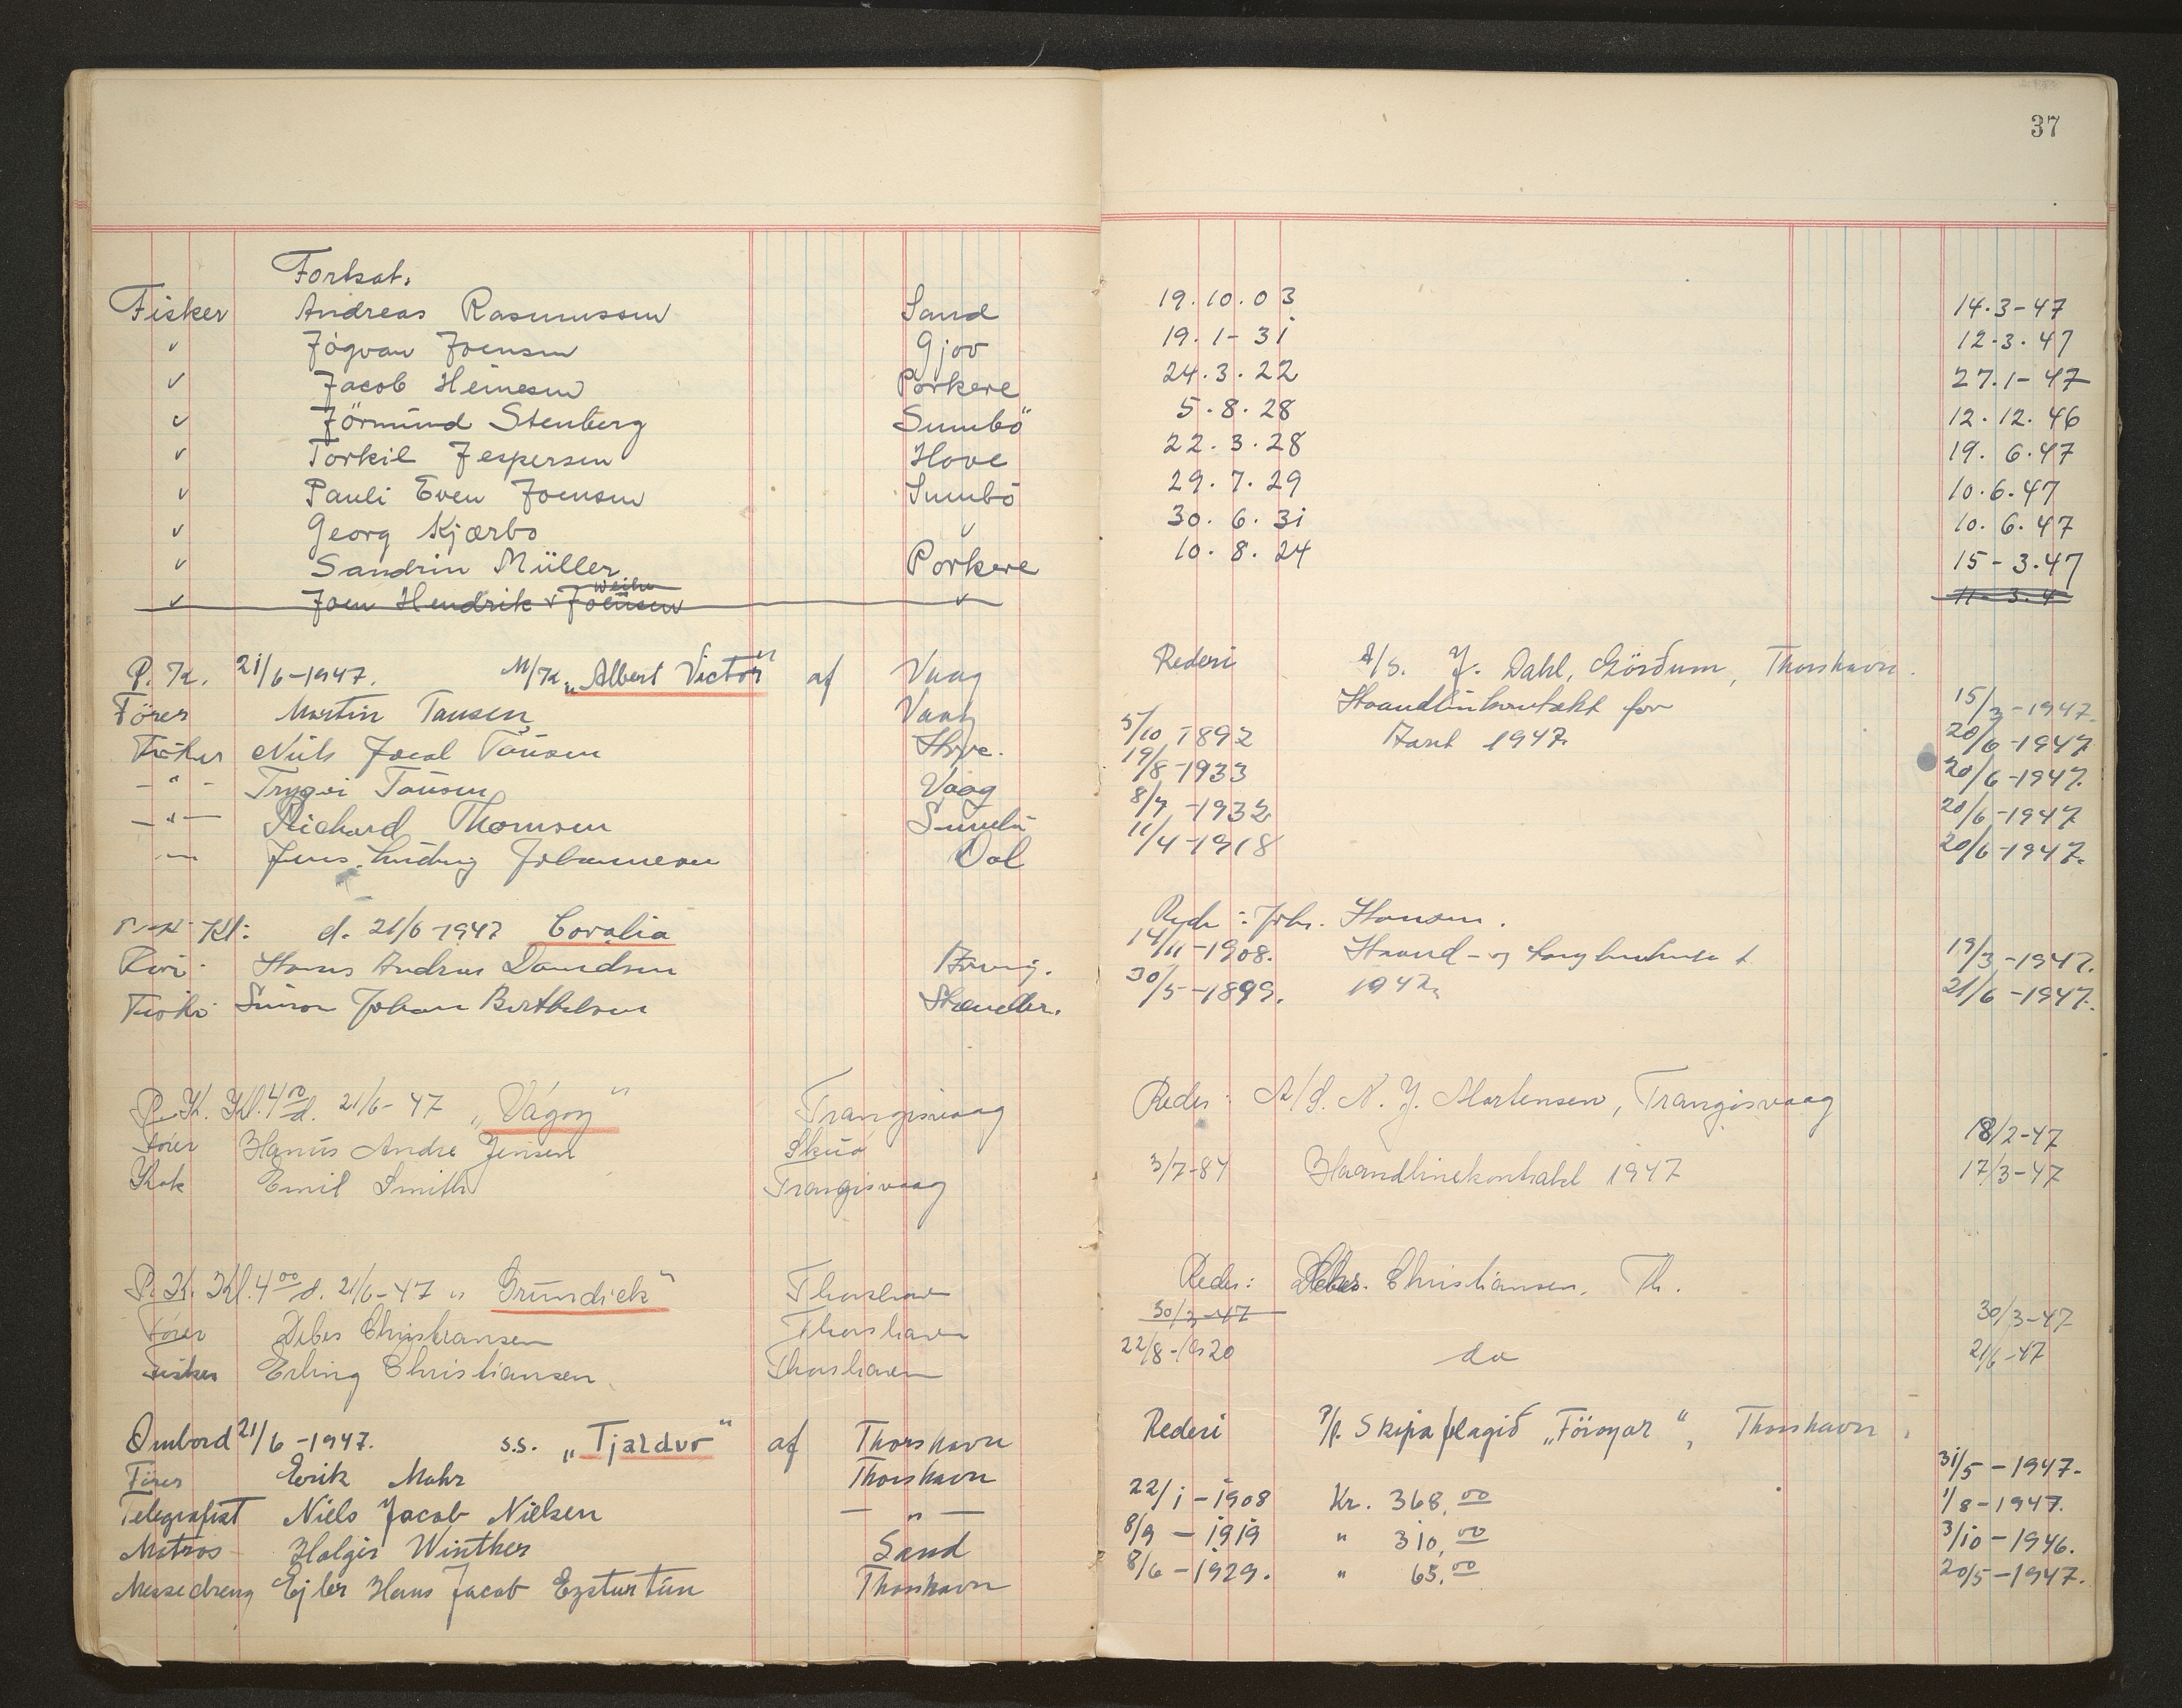 37
Fortsat.
Fisker Andreas Rasmussen Sand 19.10.03 14.3-47
v Jógvan Joensen Gjov 19.1-31 12.3.47
v Jacob Heinesen Porkere 24.3.22 27.1-47
v Jörmund Stenberg Sumbö 5.8.28 12.12.46
v Torkil Jespersen Hove 22.3.28 19.6.47
v Pauli Even Joensen Sumbö 29.7.29 10.6.47
v Georg Kjærbo v 30.6.31 10.6.47
v Sandrin Müller Porkere 10.8.24 15-3.47
v Joen Hendrik v Joensen v 11-3.4
P. K. 21/6-1947. M/K „Albert Victor" af Vaag Rederi A/S. J. Dahl, Görðum, Thorshavn.
Förer Martin Tausen Vaag Haandlinkontrakt for 15/3-1947.
Fisker Niels Joval Tausen Hove. 5/10 1892 Aaret 1947. 20/6-1947
-"- Trygvi Tausen Vaag 19/8-1933 20/6-1947.
-"- Richard Thomsen Sumbö 8/7-1932 20/6-1947
-"- Jens Ludvig Johannesen Dal 11/4-1918 20/6-1947.
d. 21/6-1947 Coralia Reder: Johs. Hansen.
Hans Andreas Danielsen 14/11-1908. Haand- og 19/3-1947.
Simon Johan Berthelsen 30/5-1899. 1947. 21/6-1947.
P. K. Kl. 4 00 d. 21/6-47 „Vágoy" Trangisvaag Reder: A/S. N. J. Mortensen, Trangisvaag
Förer Hanus Andre Jensen Skúo 18/2-47
Kok Emil Smith Trangisvaag 3/7-87 Haandlinekontrakt 1947 17/3-47
P. K. Kl. 4 00 d. 21/6-47 „Grúndick" Thorshavn Reder: Debes Christiansen. Th.
Förer Debes Christiansen Thorshavn 30/3-47 30/3-47
Fisker Erling Christiansen Thorshavn 22/8-1920 do 21/6-47
Ombord 21/6-1947. s.s. „Tjaldur" af Thorshavn Rederi P/f. Skipafelagið „Föroyar", Thorshavn.
Förer Erik Mohr Thorshavn 31/5-1947.
Telegrafist Niels Jacob Nielsen -"- 22/1-1908 Kr. 368,00 1/8-1947.
Matros Holgir Winther Sand 8/9-1919 " 310,00 3/10-1946.
Messedreng Ejler Hans Jacob Eysturtún Thorshavn 8/6-1929. " 65,00 20/5-1947.